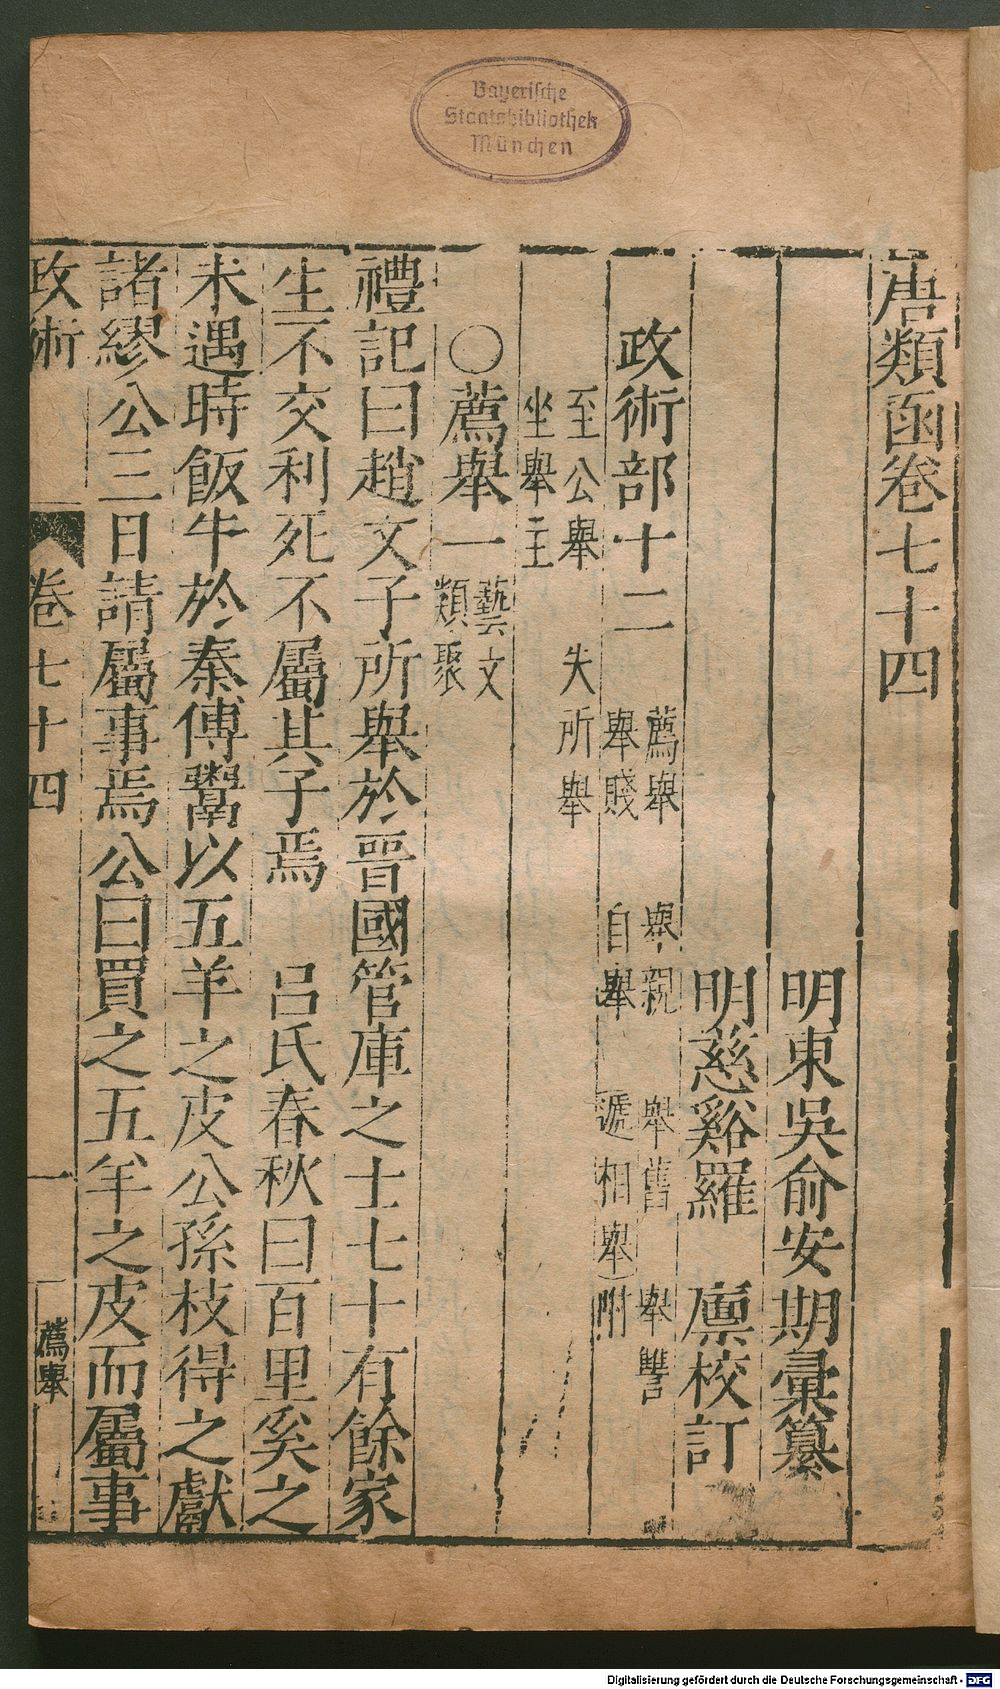 Bayerische
Staatsbibliothek
München
唐類函卷七十四
明東吳俞安期彙纂
明慈谿羅　廩校訂
政術部十二
薦舉　舉親　舉舊　舉讐
舉賤　自舉　遞相舉附
至公舉　失所舉
坐舉主
○薦舉一
藝文
類聚
禮記曰趙文子所舉於晉國管庫之士七十有餘家
生不交利死不屬其子焉　呂氏春秋曰百里奚之
未遇時飯牛於秦傅鬻以五羊之皮公孫枝得之獻
諸繆公三日請屬事焉公曰買之五羊之皮而屬事
政術　卷七十四　一　薦舉
Digitalisierung gefördert durch die Deutsche Forschungsgemeinschaft - DFG